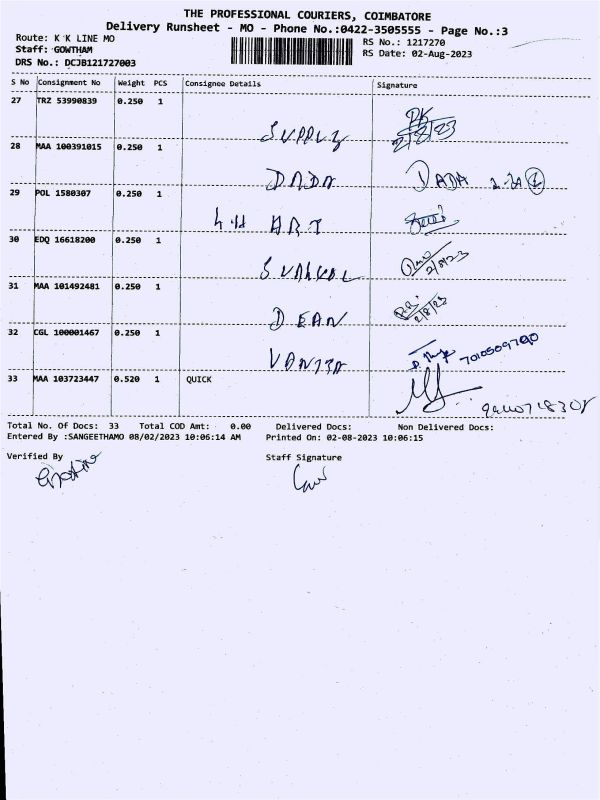 THE PROFESSIONAL COURIERS, COIMBATORE
Delivery Runsheet - MO - Phone No.:0422-3505555 - Page No.:3
Route: K K LINE MO
RS No.: 1217270
Staff: GOWTHAM
RS Date: 02-Aug-2023
DRS No.: DCJB121727003
S No Consignment No Weight PCS Consignee Details Signature
27 TRZ 53990839 0.250 1
2/8/23
28 MAA 100391015 0.250 1
DADA DADA
29 POL 1580307 0.250 1
ART
30 EDQ 16618200 0.250 1
2/8/23
31 MAA 101492481 0.250 1
DEAN 2/8/23
32 CGL 100001467 0.250 1
33 MAA 103723447 0.520 1 QUICK
Total No. Of Docs: 33 Total COD Amt: 0.00 Delivered Docs: Non Delivered Docs:
Entered By :SANGEETHAMO 08/02/2023 10:06:14 AM Printed On: 02-08-2023 10:06:15
Verified By Staff Signature